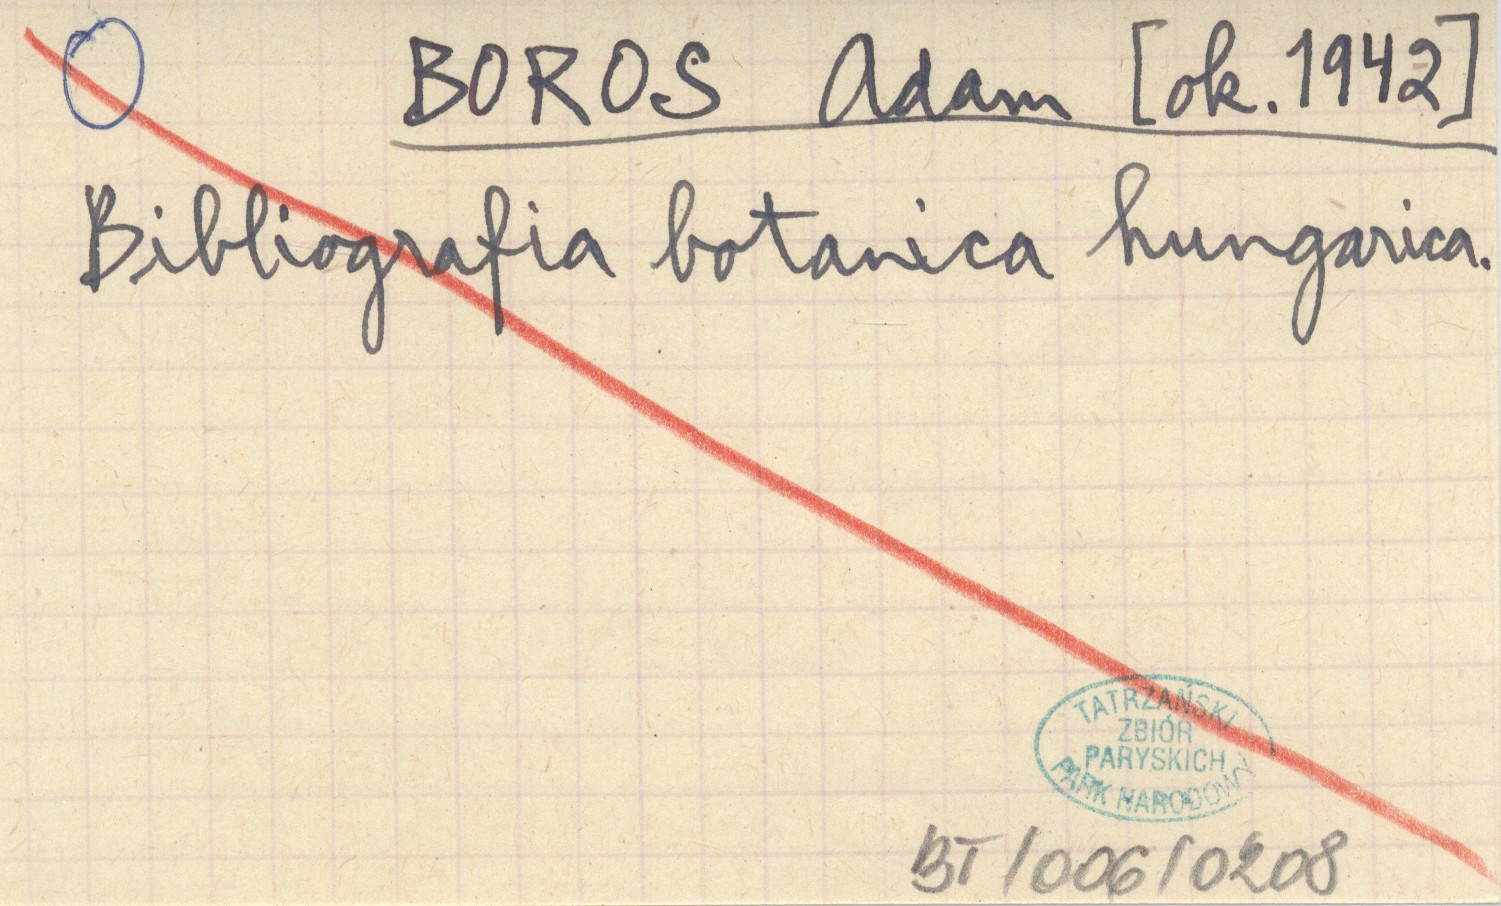 BOROS Adam [ok. 1942]
Bibliografia botanica hungarica.
TATRZAŃSKI
ZBIÓR
PARYSKICH
PARK NARODOWY
BT/006/0208